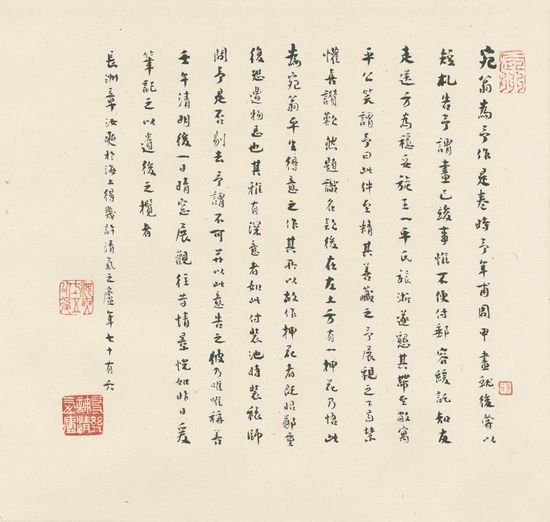 宛翁為予作是卷時予年甫周甲畫就後以
短札告予謂畫已竣事惟不便付郵容緩託知友
走送方為穩妥旋王一平氏旅淅遂懇其帶至敝寓
平公笑謂予曰此件至精其善藏之予展觀之下禁
懽喜讚歎然題識名款後在左上方有一押花乃悟此
為宛翁平生得意之作其所以故作押花者既昭鄭重
復恐遺也其有深意者如此付裝池時裝裱師
問予是否剔去予謂不可并以此意告之彼乃唯唯稱善
壬午清明後一日晴窗展觀往昔情景恍如昨日爰
筆記之以遺後之攬者
長洲章汝奭於海上得幾許清氣之廬年七十有六